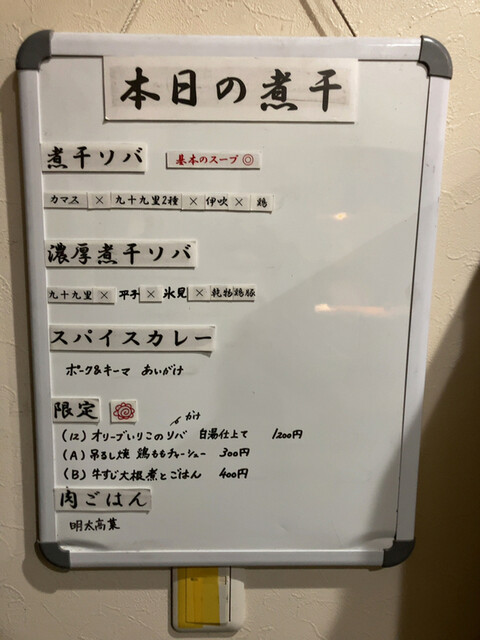 本日の煮干
煮干ソバ 基本のスープ◎
カマス × 九十九里2種 × 伊吹 × 鶏
濃厚煮干ソバ
九十九里 × 平子 × 氷見 × 乾物鶏豚
スパイスカレー
ポーク&キーマ あいがけ
限定
かけ
(12) オリーブいりこのソバ 白湯仕上て 1200円
(A) 吊るし焼 鶏ももチャーシュー 300円
(B) 牛すじ大根煮とごはん 400円
肉ごはん
明太高菜